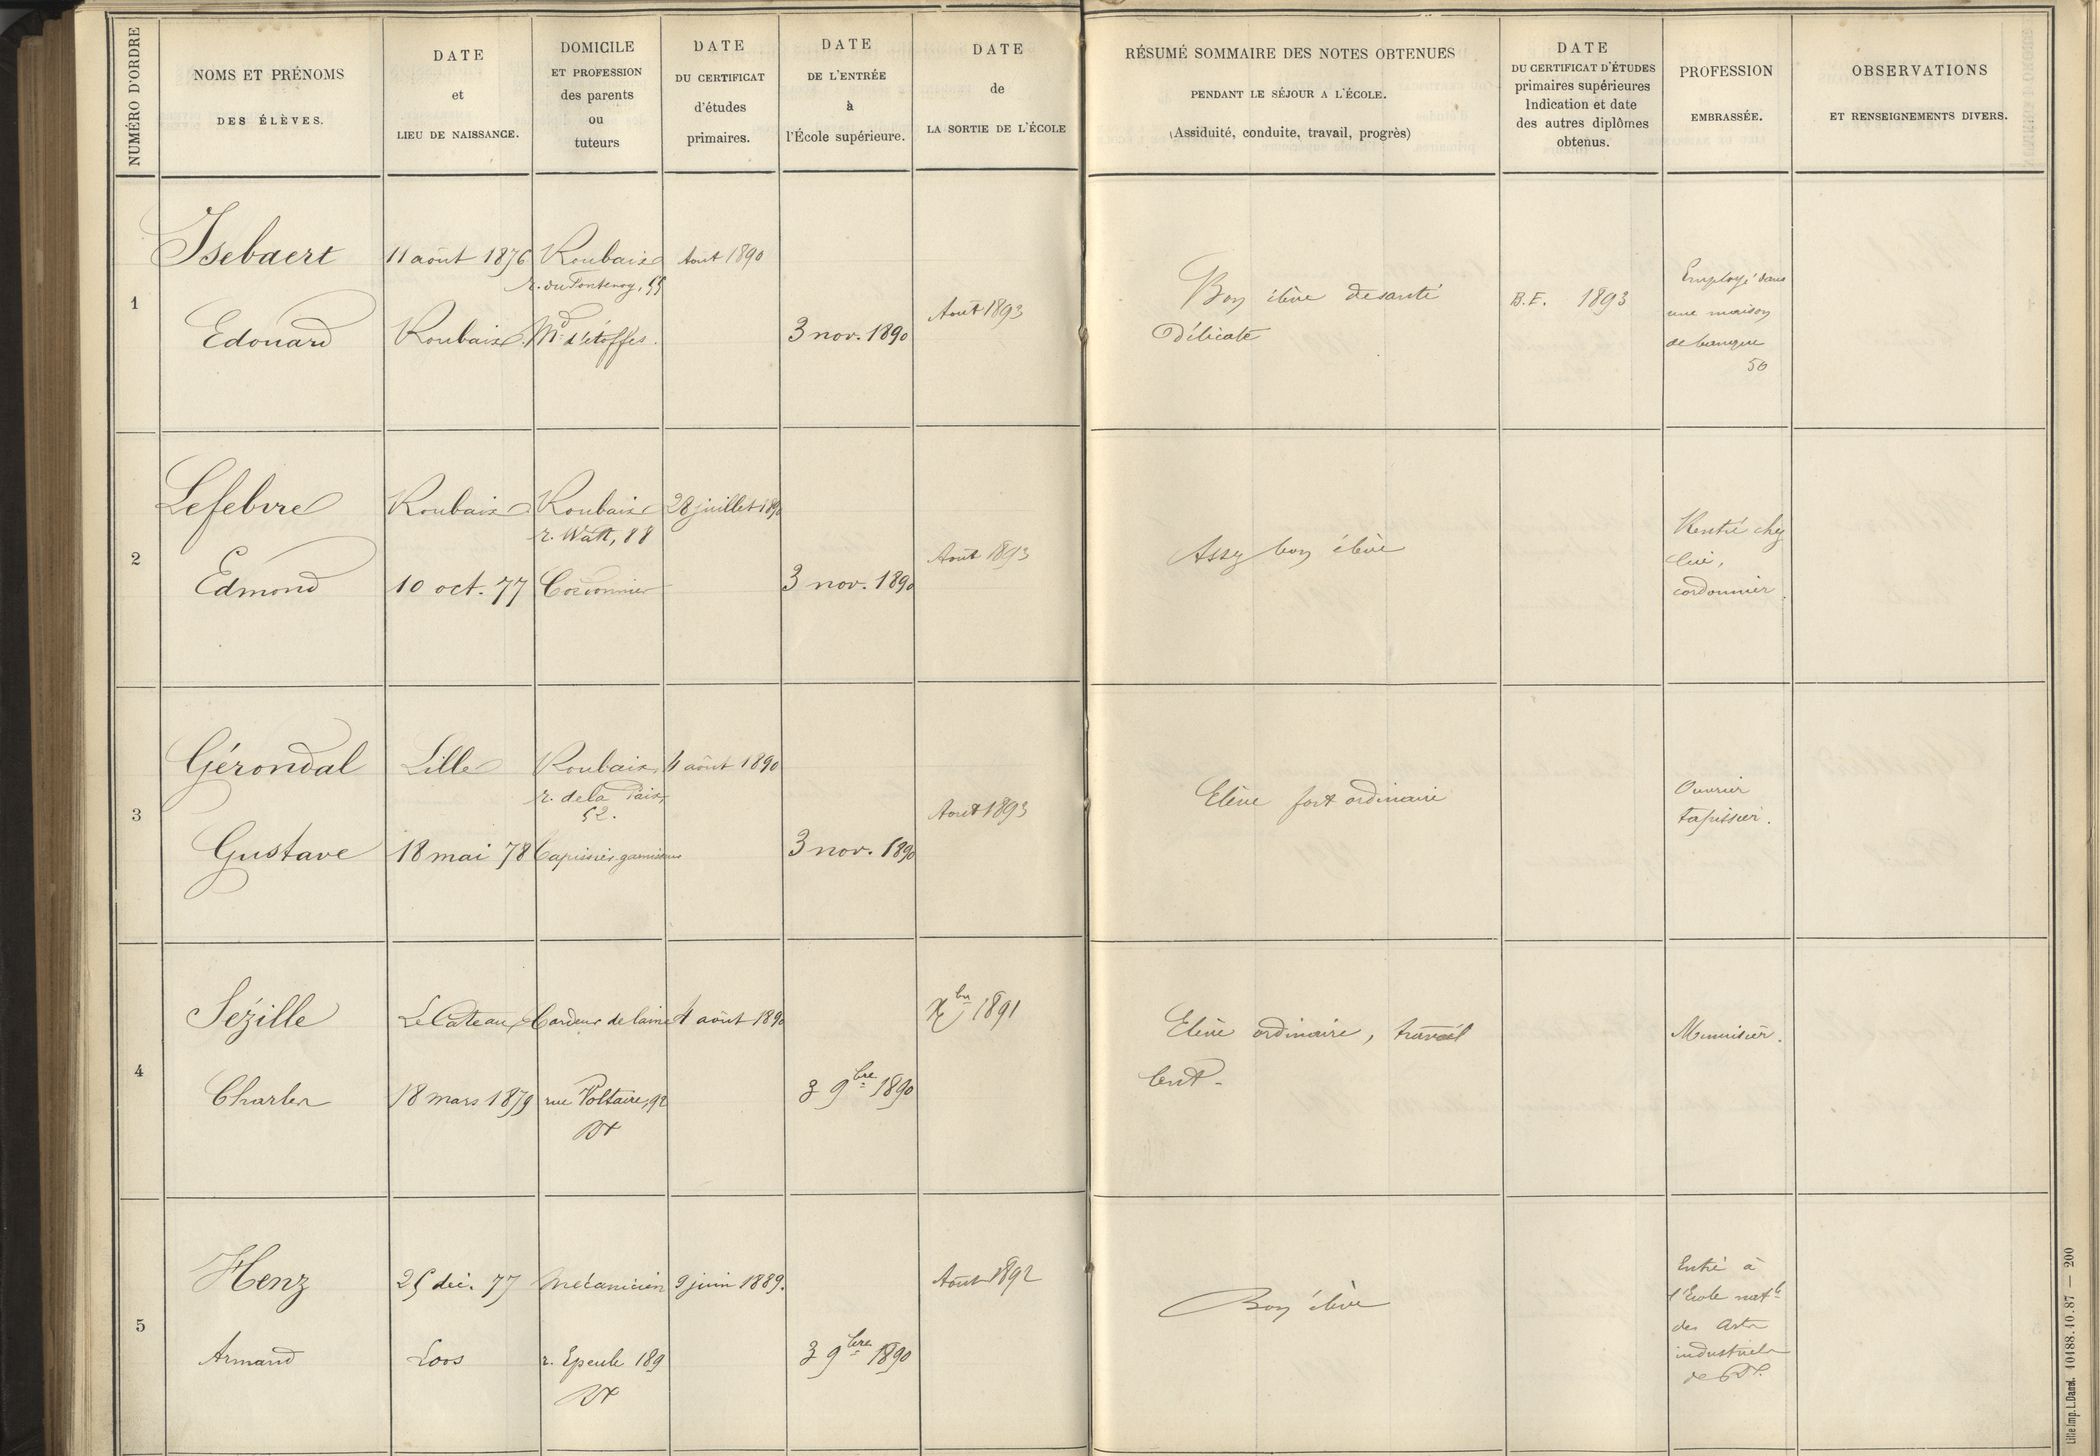 NUMÉRO D'ORDRE
NOMS ET PRÉNOMS
DES ÉLÈVES.
DATE
et
LIEU DE NAISSANCE.
DOMICILE
ET PROFESSION
des parents
ou
tuteurs
DATE
DU CERTIFICAT
d'études
primaires.
DATE
DE L'ENTRÉE
à
l'École supérieure.
DATE
de
LA SORTIE DE L'ÉCOLE
RÉSUMÉ SOMMAIRE DES NOTES OBTENUES
PENDANT LE SÉJOUR A L'ÉCOLE.
(Assiduité, conduite, travail, progrès)
DATE
DU CERTIFICAT D'ÉTUDES
primaires supérieures
Indication et date
des autres diplômes
obtenus.
PROFESSION
EMBRASSÉE.
OBSERVATIONS
ET RENSEIGNEMENTS DIVERS.
1
Isebaert
Edouard
11 août 1876
Roubaix
Roubaix
r. du Fontenoy, 55
Md d'étoffes.
Août 1890
3 nov. 1890
Août 1893
Bon élève de santé
délicate
B.E. 1893
Employé dans
une maison
de banque
50
2
Lefebvre
Edmond
Roubaix
10 oct. 77
Roubaix
r. Watt, 88
Cordonnier
28 juillet 1890
3 nov. 1890
Août 1893
Assez bon élève
Rentré chez
lui,
cordonnier.
3
Gérondal
Gustave
Lille
18 mai 78
Roubaix,
r. de la Paix,
52.
Tapissier garnisseur
4 août 1890
3 nov. 1890
Août 1893
Elève fort ordinaire
Ouvrier
tapissier.
4
Sézille
Charles
Le Cateau
18 mars 1879
Cardeur de laine
rue Voltaire, 92
Rx
4 août 1890
3 9bre 1890
Xbre 1891
Elève ordinaire, travail
lent.
Menuisier.
5
Henz
Armand
25 déc. 77
Loos
Mécanicien
r. Epeule 189
Rx
9 juin 1889.
3 9bre 1890
Août 1892
Bon élève
Entré à
l'Ecole natle
des Arts
industriels
de Rx.
Lille Imp. L. Danel. 10188.10.87 — 200